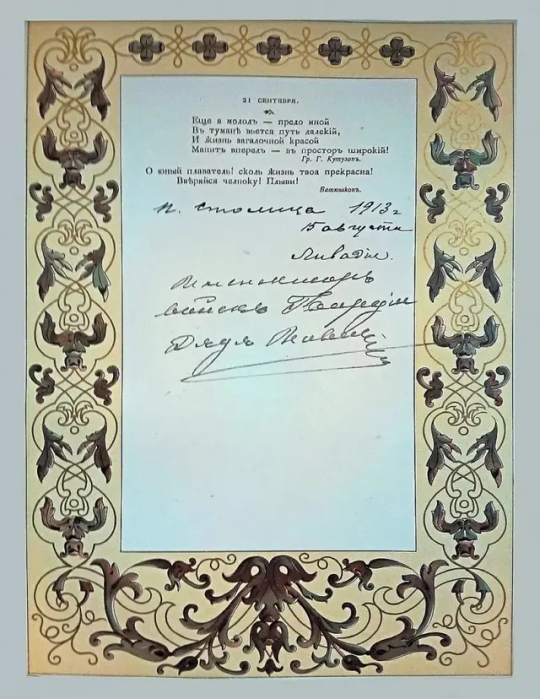 21 СЕНТЯБРЯ.
Еще я молодъ — предо мной
Въ туманѣ вьется путь далекій,
И жизнь загадочной красой
Манитъ впередъ — въ просторъ широкій!
Гр. Г. Кутузовъ.
О юный плаватель! сколь жизнь твоя прекрасна!
Ввѣряйся челноку! Плыви!
Батюшковъ.
столица 1913 г
15 августа
Ливадія.
Дядя